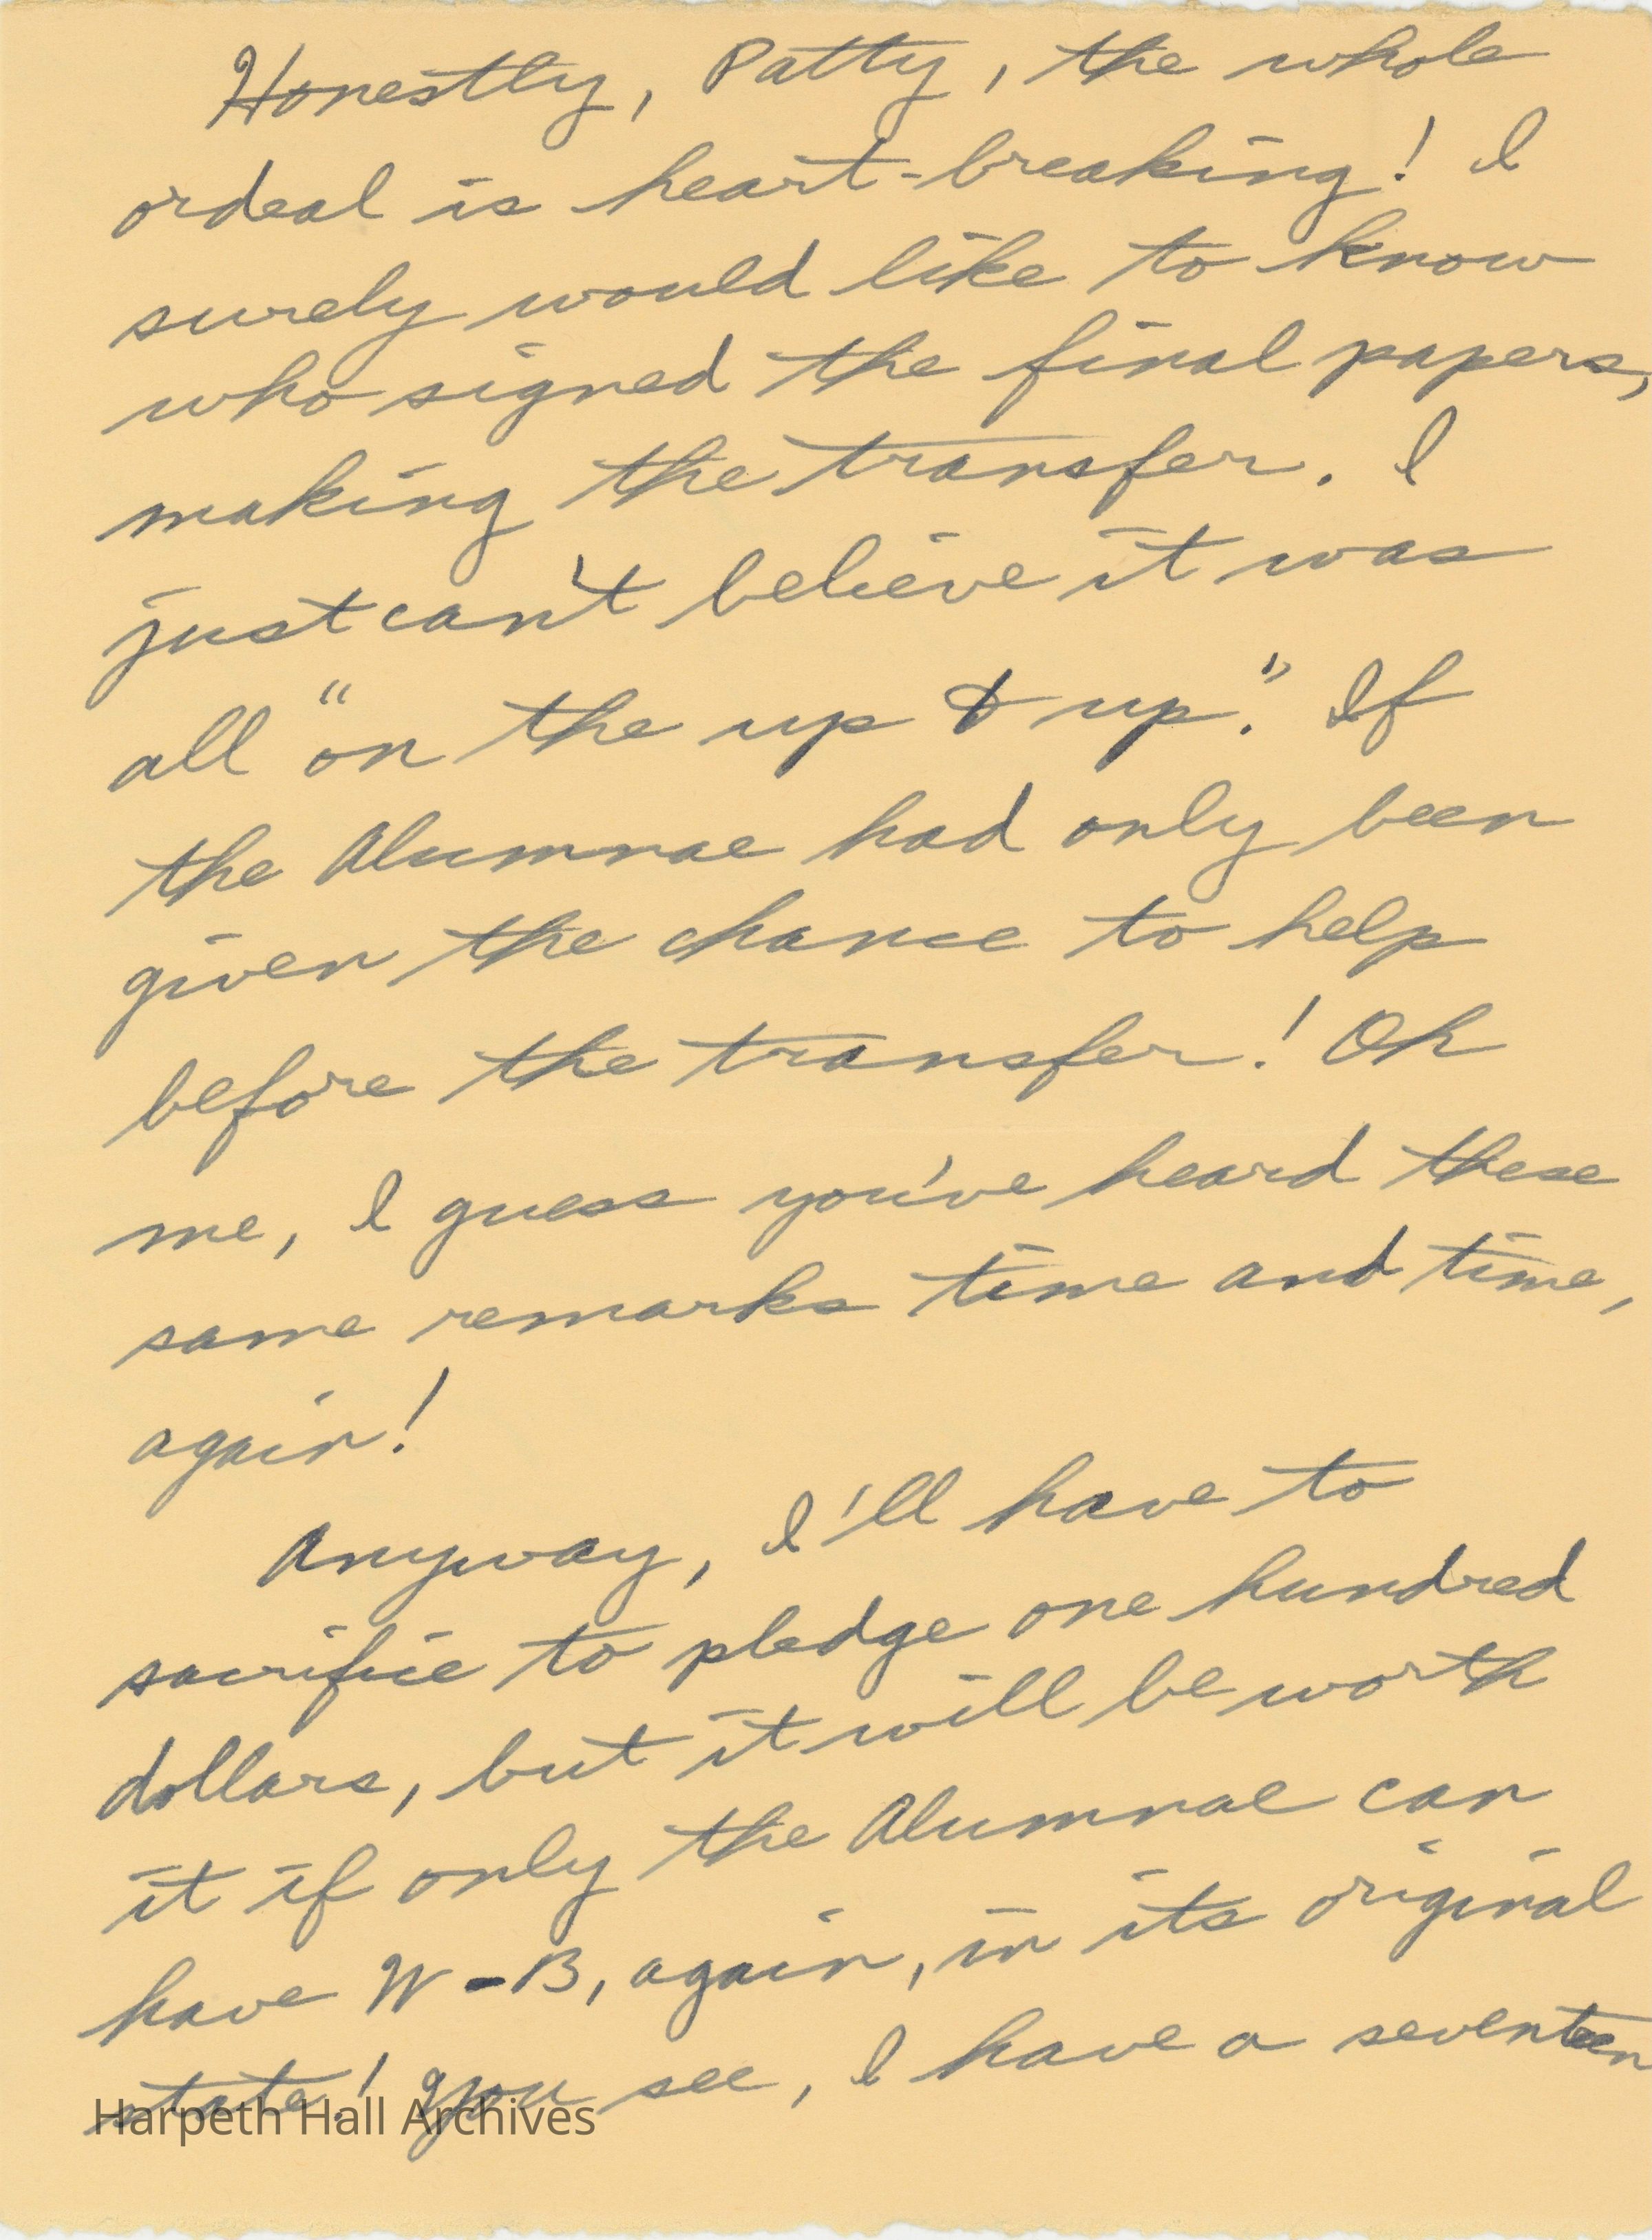 Honestly, Patty, the whole
ordeal is heart-breaking! I
surely would like to know
who signed the final papers,
making the transfer. I
just can't believe it was
all "on the up & up." If
the Alumnae had only been
given the chance to help
before the transfer! Oh
me, I guess you've heard these
same remarks time and time,
again!
Anyway, I'll have to
sacrifice to pledge one hundred
dollars, but it will be worth
it if only the Alumnae can
have W-B, again, in its original
state! You see, I have a seventeen
Harpeth Hall Archives